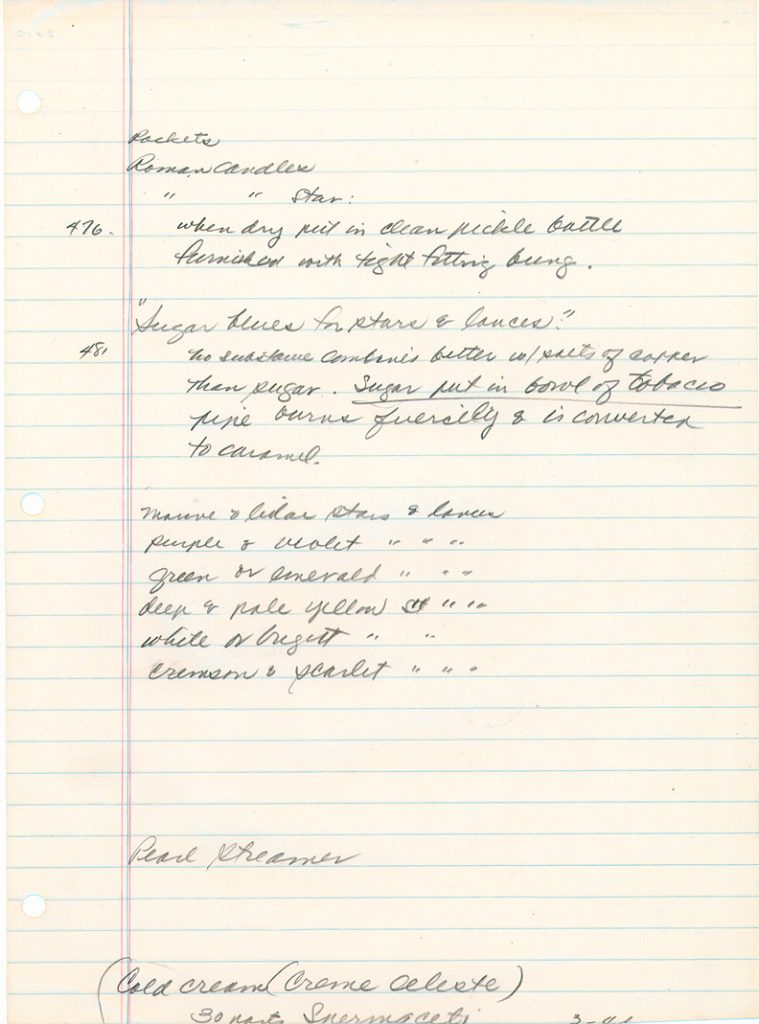 Rockets
Roman Candles
" " Star:
476. when dry put in clean pickle bottle
furnished with tight fitting bung.
"Sugar blues for stars & lances."
481 no substance combines better w/ salts of copper
than sugar. Sugar put in bowl of tobacco
pipe burns fiercely & is converted
to caramel.
mauve & lilac stars & lances
purple & violet " " "
green or emerald " " "
deep & pale yellow st " "
white or bright " "
crimson & scarlet " " "
Pearl Streamer
(Cold cream (Creme Celeste)
30 parts Spermaceti